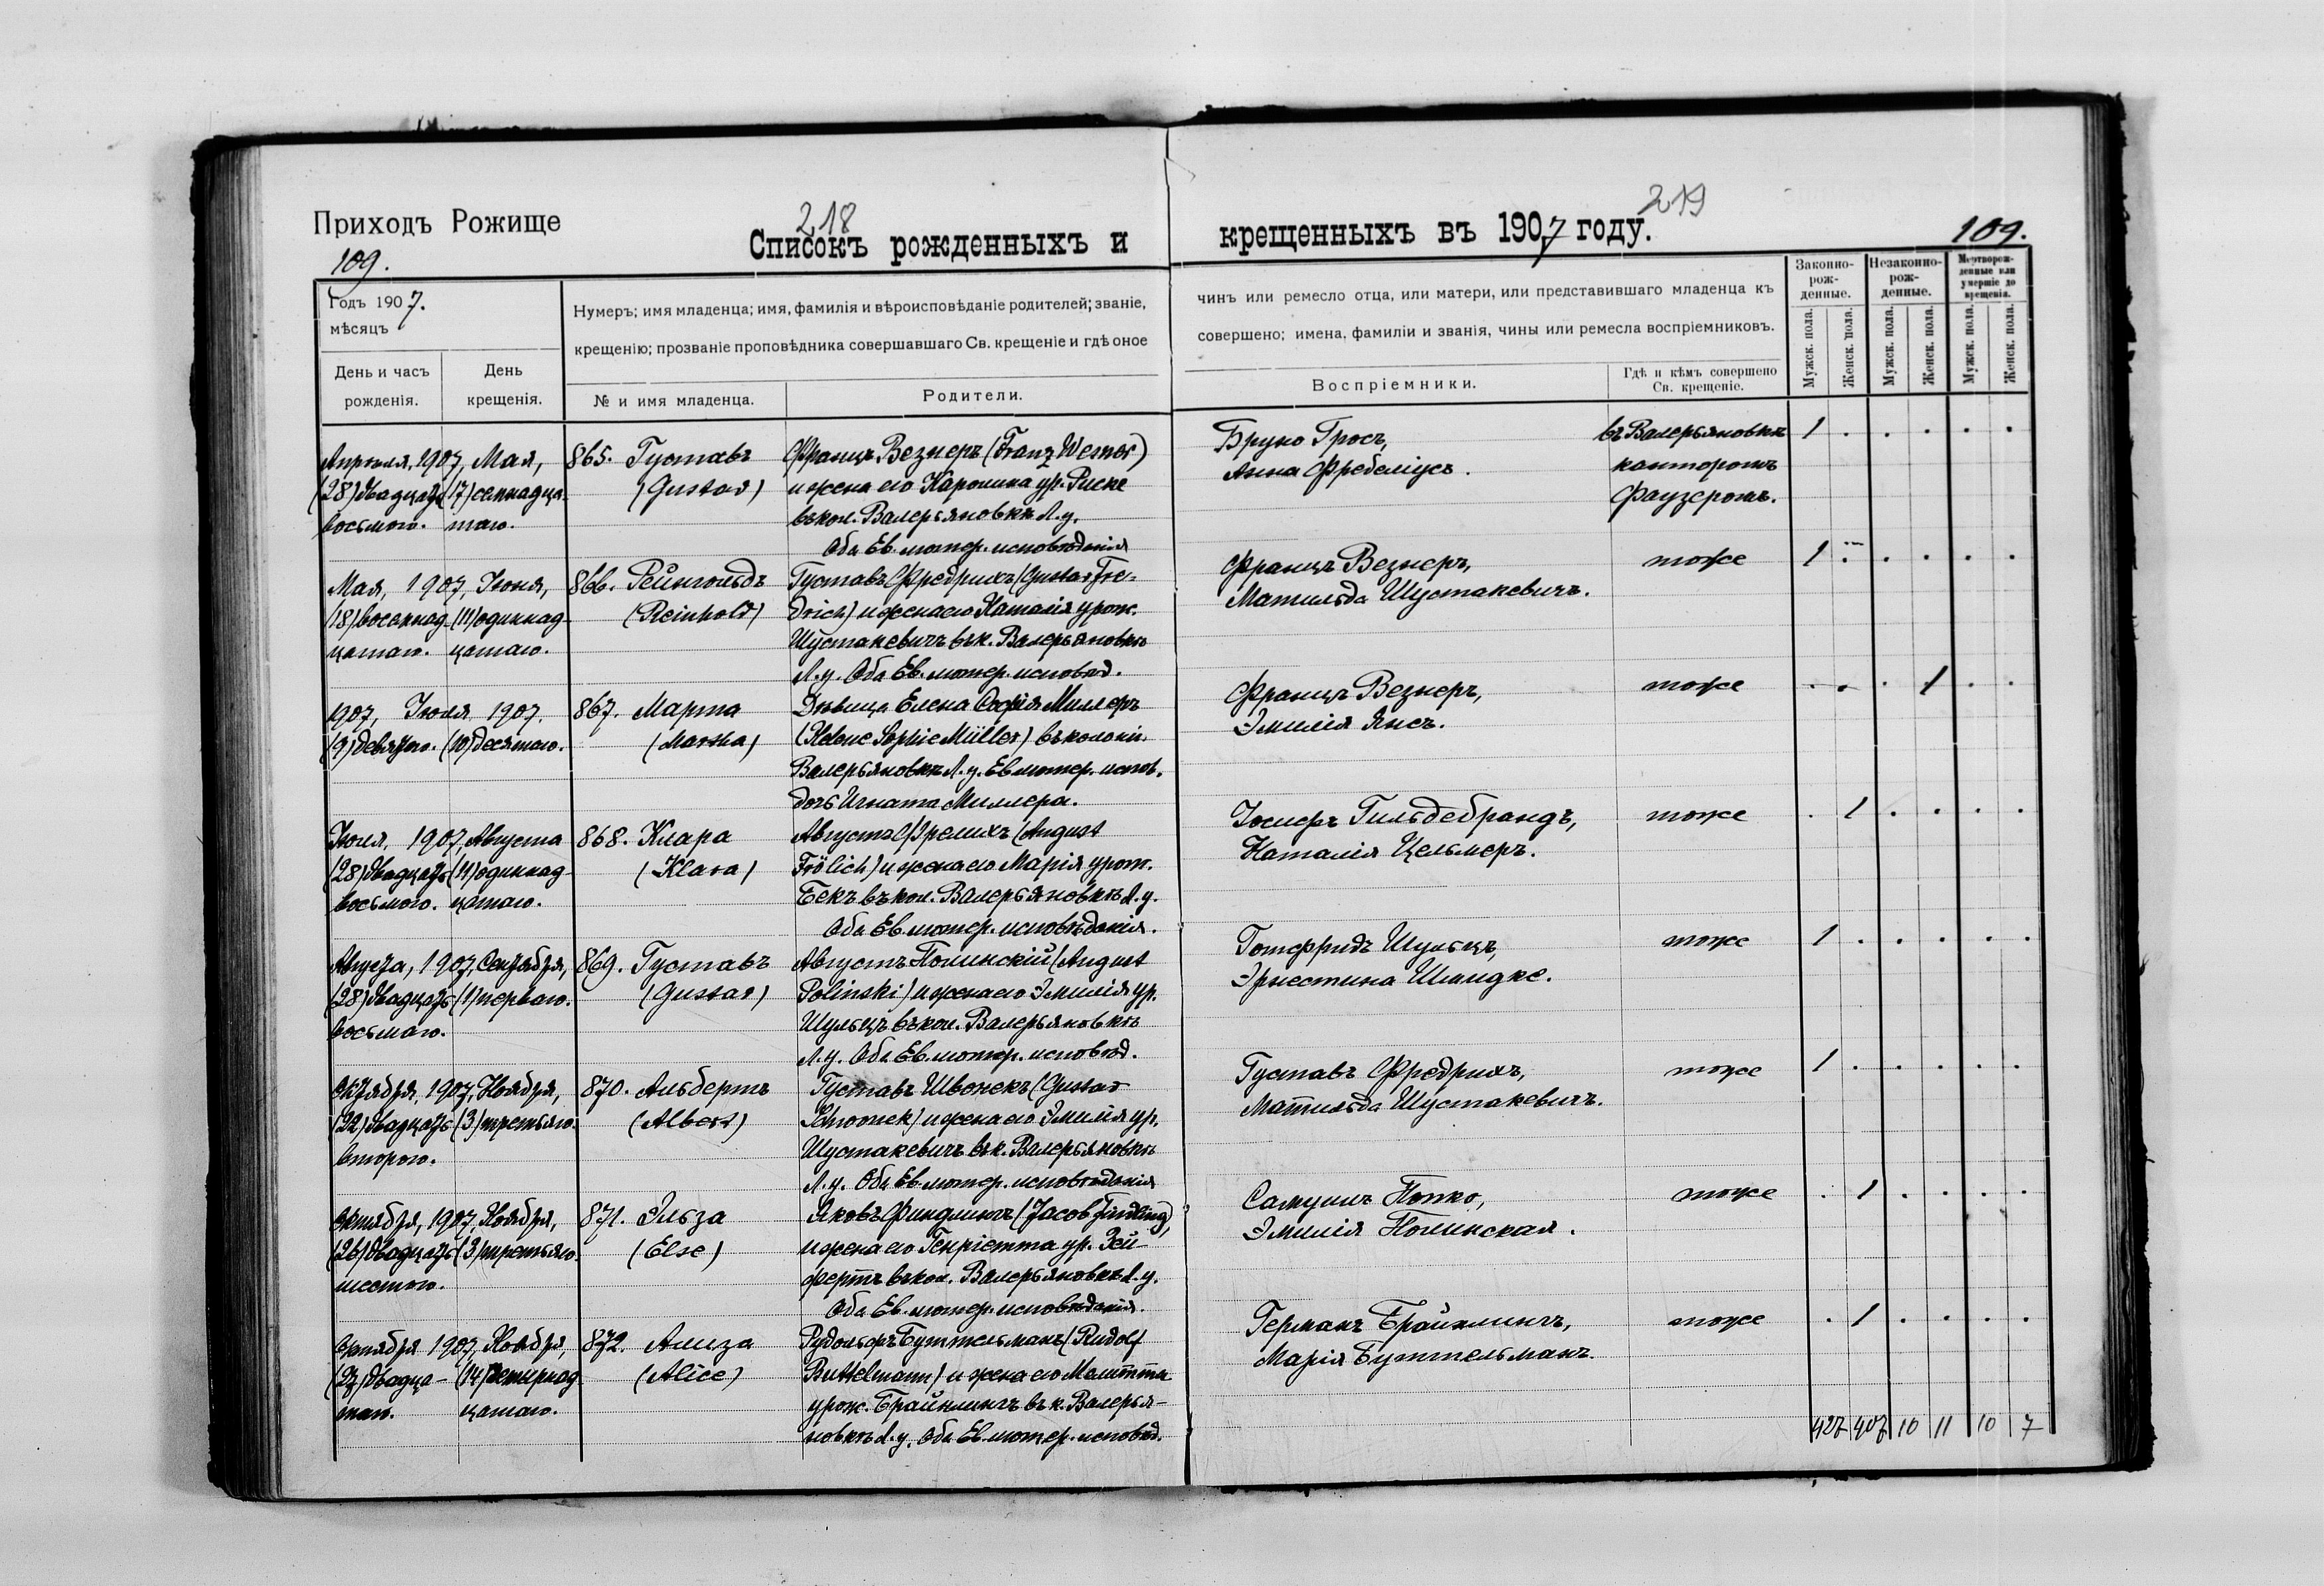 Приходъ Рожище
218
109.
Списокъ рожденныхъ и
Годъ 1907.
мѣсяцъ
День и часъ рожденія.
День крещенія.
Нумеръ; имя младенца; имя, фамилія и вѣроисповѣданіе родителей; званіе,
крещенію; прозваніе проповѣдника совершавшаго Св. крещеніе и гдѣ оное
№ и имя младенца.
Родители.
Апрѣля, 1907, Мая, 865. Густавъ Францъ Везнеръ (Franz Wesner)
(28) двадцать (17) семнадца- (Gustav) и жена его Каролина ур. Риске
восьмого. таго. въ кол. Валерьяновкѣ Л.у.
Оба Ев. лютер. исповѣданія
Мая, 1907, Іюня, 866. Рейнгольдъ Густавъ Фредрихъ (Gustav Fre-
(18) восемнад- (11) одиннад- (Reinhold) drich) и жена его Наталія урож.
цатаго. цатаго. Шустакевичъ въ к. Валерьяновкѣ
Л.у. Оба Ев. лютер. исповѣд.
1907, Іюля 1907, 867. Марта Дѣвица Елена Софія Миллеръ
(9) девятаго. (10) десятаго. (Martha) (Helene Sophie Müller) въ колоніи
Валерьяновкѣ Л.у. Ев лютер. испов.
дочь Игната Миллера.
Іюля, 1907, Августа 868. Клара Августъ Фрелихъ (August
(28) двадцать (11) одиннад- (Klara) Frölich) и жена его Марія урож.
восьмого. цатаго. Бекъ въ кол. Валерьяновкѣ Л.у.
Оба Ев. лютер. исповѣданія.
Августа, 1907, Сентября, 869. Густавъ Августъ Полинскій (August
(28) двадцать (1) перваго. (Gustav) Polinski) и жена его Эмилія ур.
восьмаго. Шульцъ въ кол. Валерьяновкѣ
Л.у. Оба Ев. лютер. исповѣд.
Октября, 1907, Ноября, 870. Альбертъ Густавъ Швонекъ (Gustav
(22) двадцать (3) третьяго. (Albert) Schwonek) и жена его Эмилія ур.
второго. Шустакевичъ въ к. Валерьяновкѣ
Л.у. Оба Ев. лютер. исповѣданія
Октября, 1907, Ноября, 871. Эльза Яковъ Финдлингъ (Jacob Findling)
(26) двадцать (3) третьяго. (Else) и жена его Генріетта ур. Зей-
шестого. фертъ въ кол. Валерьяновкѣ Л.у.
Оба Ев. лютер. исповѣданія.
Октября 1907, Ноября, 872. Ализа Рудольфъ Буттельманъ (Rudolf
двадца- (14) четырнад- (Alice) Buttelmann) и жена его
таго. цатаго. урож. Брайнлингъ въ к. Валерья-
новкѣ Л.у. Оба Ев. лютер. исповѣд.
219
крещенныхъ въ 1907 году.
109.
чинъ или ремесло отца, или матери, или представившаго младенца къ
совершено; имена, фамиліи и званія, чины или ремесла воспріемниковъ.
Воспріемники.
Гдѣ и кѣмъ совершено Св. крещеніе.
Законно-рож-денные.
Незаконно-рож-денные.
Мертворож-денные или умершіе до крещенія.
Мужск. пола. Женск. пола. Мужск. пола. Женск. пола. Мужск. пола. Женск. пола.
Бруно Гросъ, въ Валерьяновкѣ 1 . . . . .
Анна Фребеліусъ. канторомъ
Фаузеромъ.
Францъ Везнеръ, тоже 1 . . . . .
Матильда Шустакевичъ.
Францъ Везнеръ, тоже . . . 1 . .
Эмилія Янсъ.
Іосифъ Гильдебрандъ, тоже . 1 . . . .
Наталія Цельмеръ.
Готфридъ Шульцъ, тоже 1 . . . . .
Эрнестина Шмидке.
Густавъ Фредрихъ, тоже 1 . . . . .
Матильда Шустакевичъ.
Самуилъ Попко, тоже . 1 . . . .
Эмилія Полинская.
Германъ Брайнлингъ, тоже . 1 . . . .
Марія Буттельманъ.
427 407 10 11 10 7